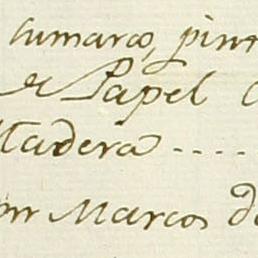 cumarco, pint
de Papel
Madera ....
con Marcos de